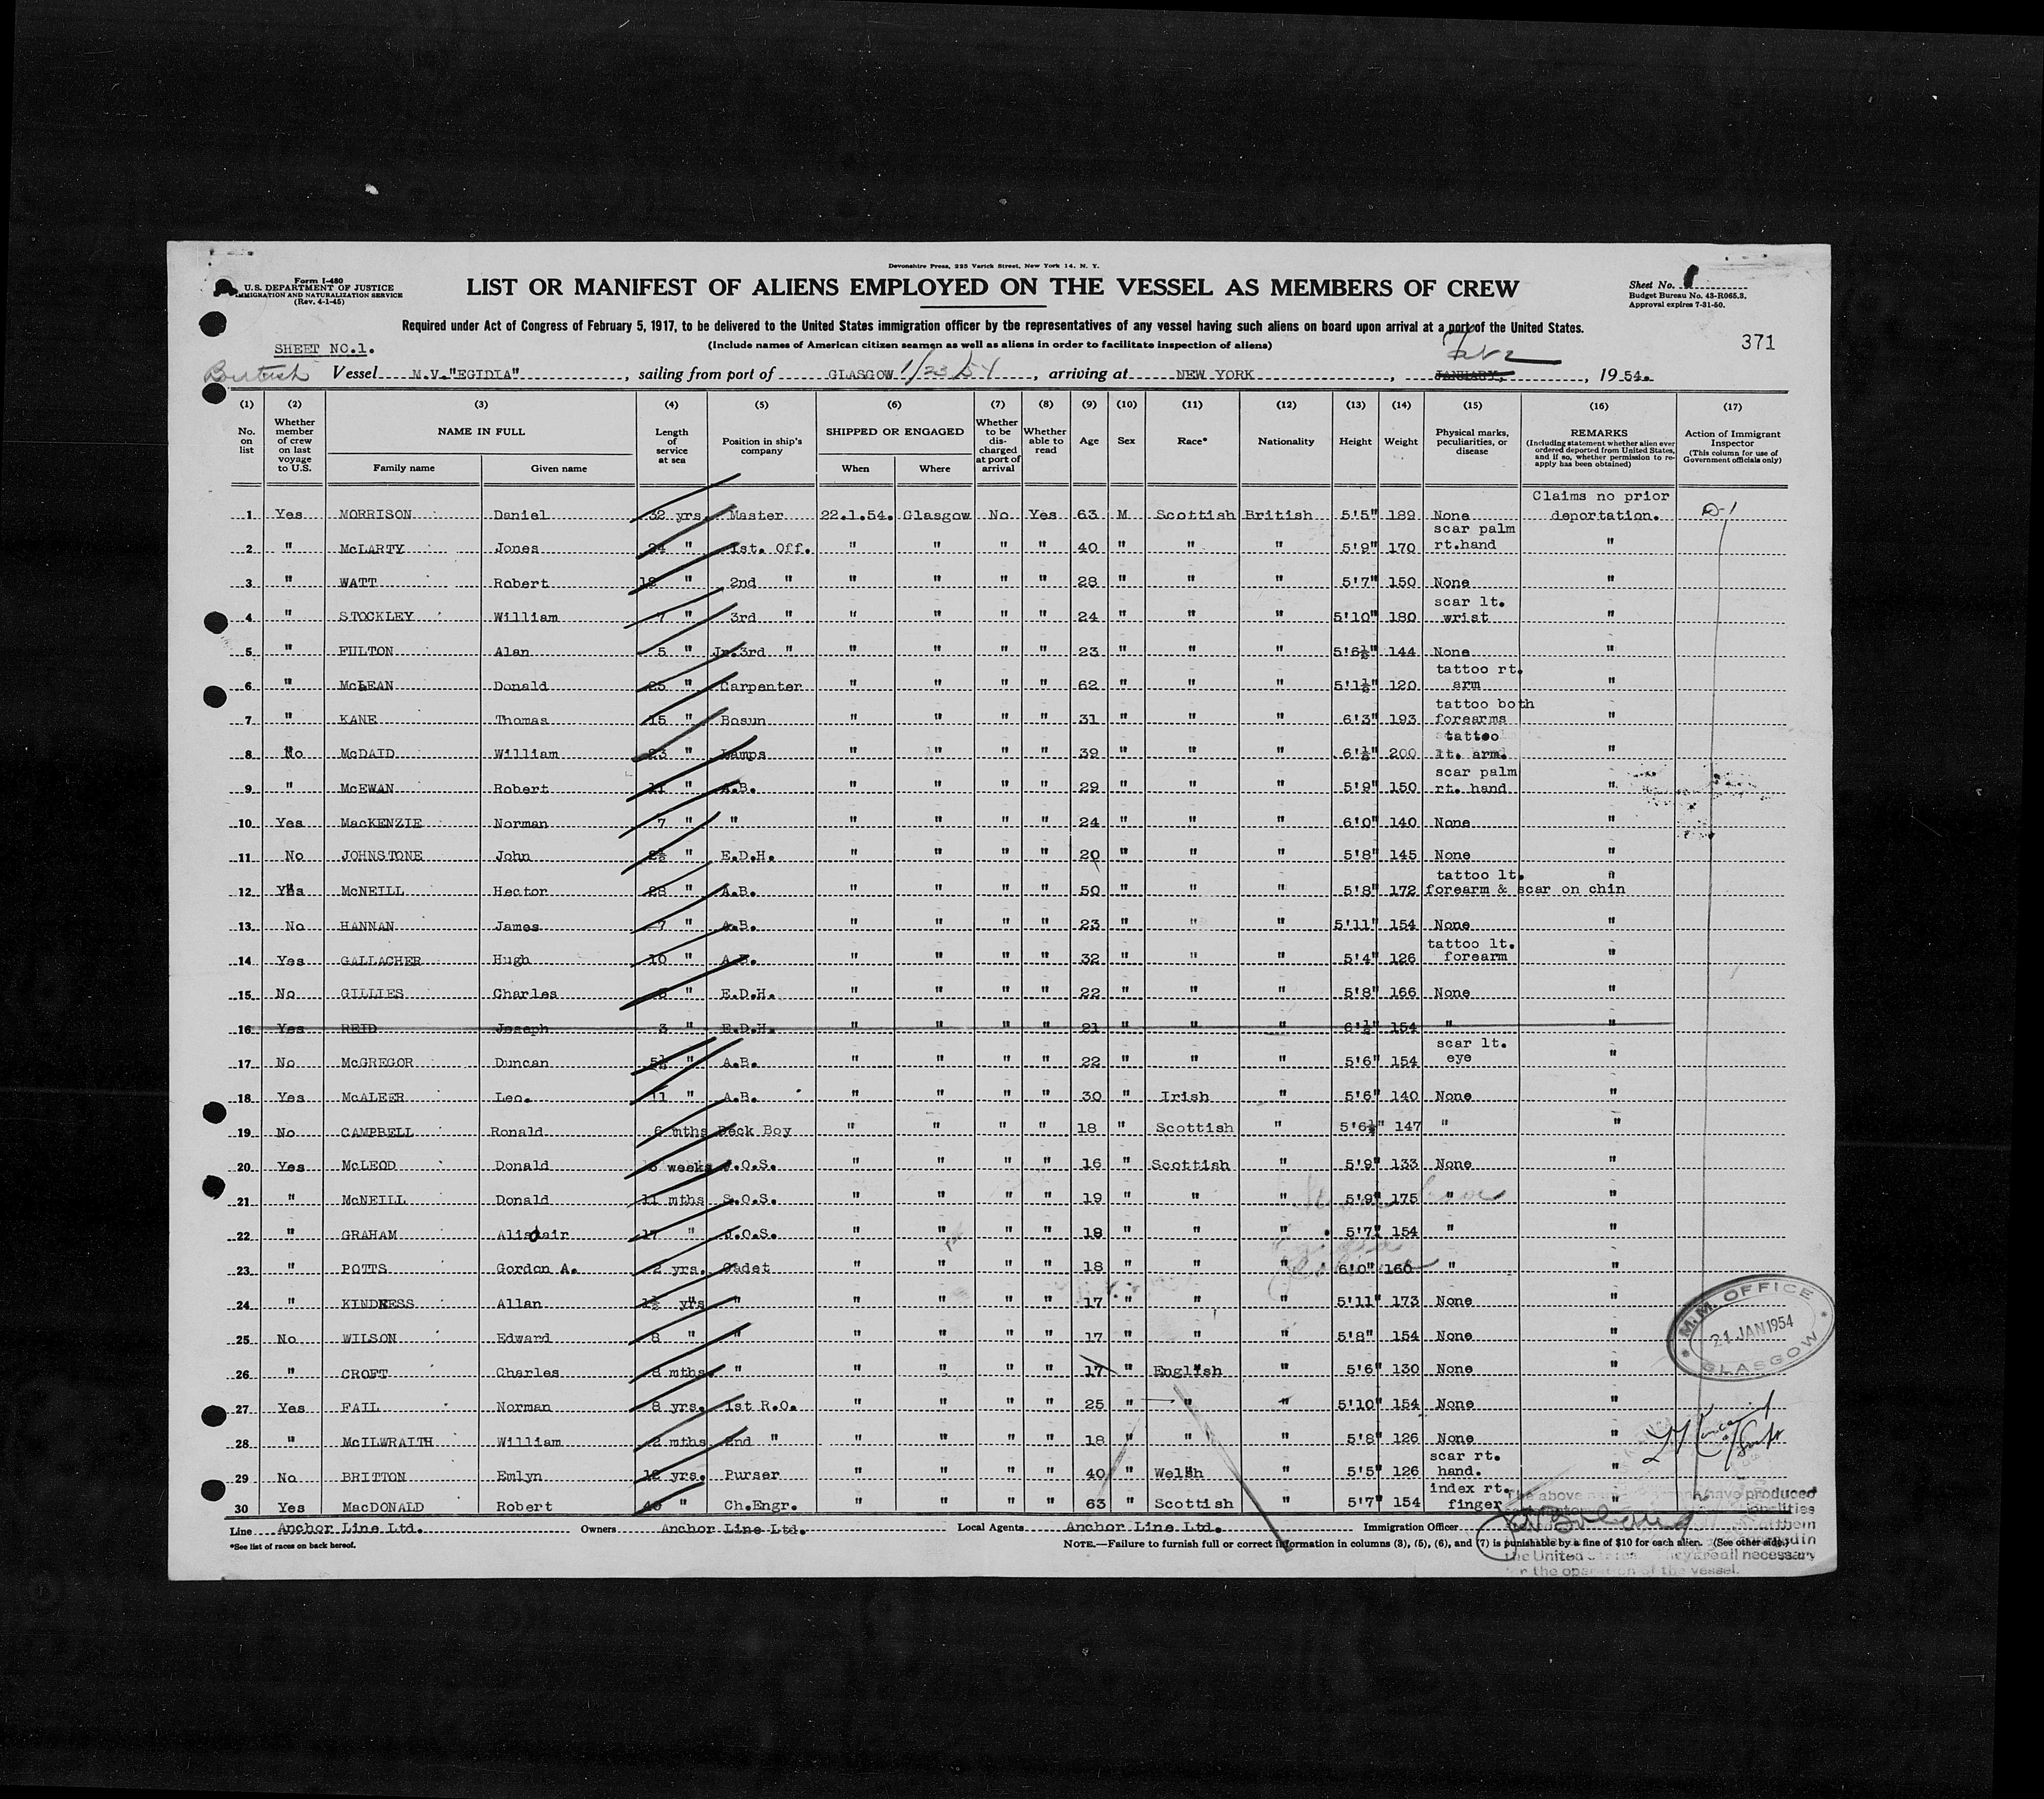 Devonshire Press, 225 Varick Street, New York 14, N. Y.
Form I-480
U.S. DEPARTMENT OF JUSTICE
IMMIGRATION AND NATURALIZATION SERVICE
(Rev. 4-1-45)
LIST OR MANIFEST OF ALIENS EMPLOYED ON THE VESSEL AS MEMBERS OF CREW
Sheet No.
Budget Bureau No. 43-R065.3.
Approval expires 7-31-50.
Required under Act of Congress of February 5, 1917, to be delivered to the United States immigration officer by the representatives of any vessel having such aliens on board upon arrival at a port of the United States.
(Include names of American citizen seamen as well as aliens in order to facilitate inspection of aliens)
371
SHEET NO.1.
British Vessel M.V."EGIDIA", sailing from port of GLASGOW 1/23/54, arriving at NEW YORK, JANUARY, Feb 2, 1954.
(1) (2) (3) (4) (5) (6) (7) (8) (9) (10) (11) (12) (13) (14) (15) (16) (17)
No. on list Whether member of crew on last voyage to U.S. NAME IN FULL Family name Given name Length of service at sea Position in ship's company SHIPPED OR ENGAGED When Where Whether to be discharged at port of arrival Whether able to read Age Sex Race* Nationality Height Weight Physical marks, peculiarities, or disease REMARKS (Including statement whether alien ever ordered deported from United States, and if so, whether permission to re-apply has been obtained) Action of Immigrant Inspector (This column for use of Government officials only)
1 Yes MORRISON Daniel 32 yrs. Master 22.1.54. Glasgow No Yes 63 M Scottish British 5'5" 189 None Claims no prior deportation.
2 " McLARTY Jones " 1st. Off. " " " " 40 " " " 5'9" 170 scar palm rt.hand "
3 " WATT Robert " 2nd " " " " " 28 " " " 5'7" 150 None "
4 " STOCKLEY William 7 " 3rd " " " " " 24 " " " 5'10" 180 scar lt. wrist "
5 " FULTON Alan 5 " Jr.3rd " " " " " 23 " " " 5'6½" 144 None "
6 " McLEAN Donald 25 " Carpenter " " " " 62 " " " 5'1½" 120 tattoo rt. arm "
7 " KANE Thomas 15 " Bosun " " " " 31 " " " 6'3" 193 tattoo both forearms "
8 No McDAID William 23 " Lamps " " " " 39 " " " 6'½" 200 tattoo lt. arm. "
9 " McEWAN Robert 11 " A.B. " " " " 29 " " " 5'9" 150 scar palm rt. hand "
10 Yes MacKENZIE Norman 7 " " " " " " 24 " " " 6'0" 140 None "
11 No JOHNSTONE John 2½ " E.D.H. " " " " 20 " " " 5'8" 145 None "
12 Yes McNEILL Hector 28 " A.B. " " " " 50 " " " 5'8" 172 tattoo lt. forearm & scar on chin "
13 No HANNAN James 7 " A.B. " " " " 23 " " " 5'11" 154 None "
14 Yes GALLACHER Hugh 10 " A.B. " " " " 32 " " " 5'4" 126 tattoo lt. forearm "
15 No GILLIES Charles " E.D.H. " " " " 22 " " " 5'8" 166 None "
16 Yes REID Joseph 3 " E.D.H. " " " " 21 " " " 6'½" 154 " "
17 No McGREGOR Duncan 5½ " A.B. " " " " 22 " " " 5'6" 154 scar lt. eye "
18 Yes McALEER Leo. 11 " A.B. " " " " 30 " Irish " 5'6" 140 None "
19 No CAMPBELL Ronald 6 mths Deck Boy " " " " 18 " Scottish " 5'6½" 147 " "
20 Yes McLEOD Donald weeks J.O.S. " " " " 16 " Scottish " 5'9" 133 None "
21 " McNEILL Donald 11 mths S.O.S. " " " " 19 " " " 5'9" 175 " "
22 " GRAHAM Alistair 17 " J.O.S. " " " " 18 " " " 5'7" 154 " "
23 " POTTS Gordon A. 2 yrs. Cadet " " " " 18 " " " 6'0" 160 " "
24 " KINDNESS Allan 1½ yrs " " " " " 17 " " " 5'11" 173 None "
25 No WILSON Edward 8 " " " " " " 17 " " " 5'8" 154 None "
26 " CROFT Charles 8 mths " " " " " 17 " English " 5'6" 130 None "
27 Yes FAIL Norman 8 yrs. 1st R.O. " " " " 25 " " " 5'10" 154 None "
28 " McILWRAITH William 2 mths 2nd " " " " " 18 " " " 5'8" 126 None "
29 No BRITTON Emlyn 12 yrs. Purser " " " " 40 " Welsh " 5'5" 126 scar rt. hand. "
30 Yes MacDONALD Robert 40 " Ch.Engr. " " " " 63 " Scottish " 5'7" 154 index rt. finger "
M.M. OFFICE
21 JAN 1954
GLASGOW
The above have produced
the United all necessary
for the operation of the vessel.
Line Anchor Line Ltd. Owners Anchor Line Ltd. Local Agents Anchor Line Ltd. Immigration Officer
*See list of races on back hereof.
NOTE.—Failure to furnish full or correct information in columns (3), (5), (6), and (7) is punishable by a fine of $10 for each alien. (See other side.)